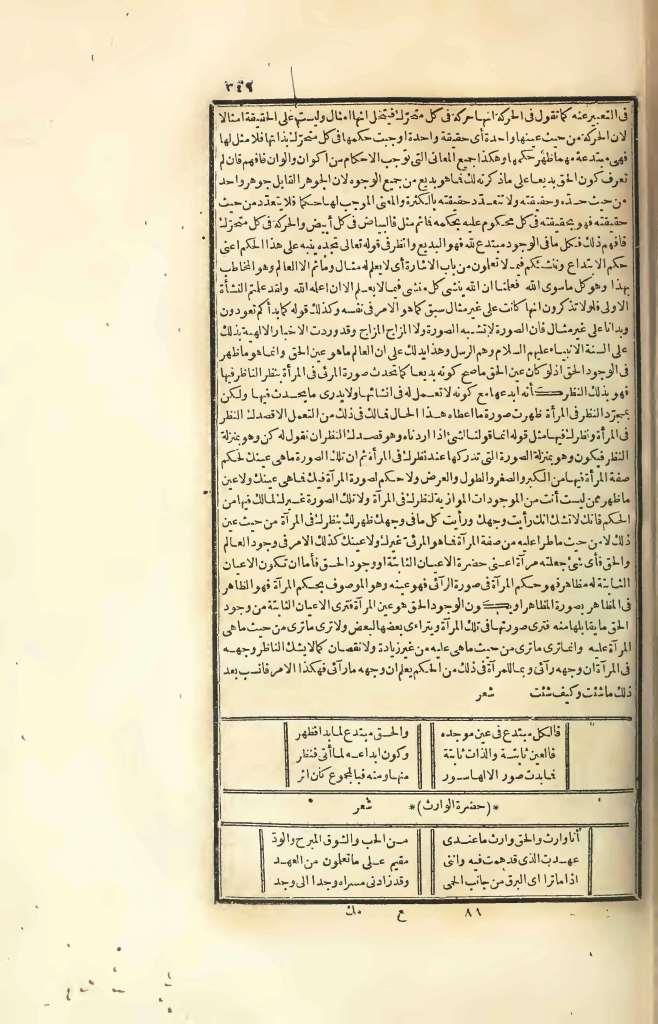 ٣٤٩
فى التعبير عنه كما نقول فى الحركة انها حركة فى كل متحرك فيتخيل انها امثال وليست على الحقيقة امثالا
لان الحركة من حيث عينها واحدة أى حقيقة واحدة اوجبت حكمها فى كل متحرك بذاتها فلا مثل لها
فهى مبتدعة مهما ظهر حكمها وهكذا جميع المعانى التى توجب الاحكام من اكوان والوان فافهم فان لم
تعرف كون الحق بديعا على ما ذكرته لك فما هو بديع من جميع الوجوه لان الجوهر القابل جوهر واحد
من حيث حده وحقيقته ولا تتعدد حقيقته بالكثرة والمعنى الموجب لها حكما فلا يتعدد من حيث
حقيقته فهو بحقيقته فى كل محكوم عليه بحكمه فاثم مثل فالبياض فى كل أبيض والحركة فى كل متحرك
فافهم ذلك فكل ما فى الوجود مبتدع لله فهو البديع وانظر فى قوله تعالى تجده ينبه على هذا الحكم اعنى
حكم الابتداع وننشئكم فيما لا تعلمون من باب الاشارة أى لا يعلم له مثال وما ثم الا العالم وهو المخاطب
بهذا وهو كل ماسوى الله فعلمنا ان الله ينشئ كل منشئ فيما لا يعلم الا ان اعلمه الله ولقد علمتم النشأة
الاولى فلولا تذكرون انها كانت على غير مثال سبق كما هو الامر فى نفسه وكذلك قوله كما بدأكم تعودون
وبدأنا على غير مثال فان الصورة لا تشبه الصورة ولا المزاج المزاج وقد وردت الاخبار الالهية بذلك
على السنة الانبياء عليهم السلام وهم الرسل وهذا يدلك على ان العالم ما هو عين الحق وانما هو ما ظهر
فى الوجود الحق اذ لو كان عين الحق ما صح كونه بديعا كما تحدث صورة المرئى فى المرآة بنظر الناظر فيها
فهو بذلك النظر كأنه ابدعها مع كونه لا تعمل له فى انشائها ولا يدرى ما يحدث فيها ولكن
بمجرد النظر فى المرآة ظهرت صورة ما اعطاه هذا الحال فالك فى ذلك من التعمل الاقصدك النظر
فى المرآة ونظرك فيها مثل قوله انما قولنا لشئ اذا اردناه وهو قصدك النظر ان نقول له كن وهو بمنزلة
النظر فيكون وهو بمنزلة الصورة التى تدركها عند نظرك فى المرآة ثم ان تلك الصورة ماهى عينك لحكم
صفة المرآة فيها من الكبر والصغر والطول والعرض ولا حكم لصورة المرآة فيك فاهى عينك ولا عين
ما ظهر ممن ليست أنت من الموجودات الموازية لنظرك فى المرآة ولا تلك الصورة غيرك لمالك فيها من
الحكم فانك لا تشك انك رأيت وجهك ورأيت كل ما فى وجهك ظهر لك بنظرك فى المرآة من حيث عين
ذلك لا من حيث ما طرأ عليه من صفة المرآة فما هو المرئى غيرك ولا عينك كذلك الامر فى وجود العالم
والحق فأى شئ جعلته مرآة اعنى حضرة الاعيان الثابتة او وجود الحق فأما ان تكون الاعيان
الثابتة له مظاهر فهو حكم المرآة فى صورة الرائى فهو عينه وهو الموصوف بحكم المرآة فهو الظاهر
فى المظاهر بصورة المظاهر او يكون الوجود الحق هو عين المرآة فترى الاعيان الثابتة من وجود
الحق ما يقابلها منه فترى صورتها فى تلك المرآة ويتراءى بعضها لبعض ولا ترى ما ترى من حيث ماهى
المرآة عليه وانما ترى ما ترى من حيث ماهى عليه من غير زيادة ولا نقصان كما لا يشك الناظر وجهه
فى المرآة ان وجهه رآى وبما للمرآة فى ذلك من الحكم يعلم ان وجهه ما رآى فهكذا الامر فانسب بعد
ذلك ما شئت وكيف شئت شعر
فالكل مبتدع فى عين موجده والحق مبتدع لما بدا فظهر
فالعين ثابتة والذات ثابتة وكون ابداعه لما أتى فنظر
فما بدت صور الا لها سور منها ومنه فبالمجموع كان اثر
*(حضرة الوارث)* شعر
أنا وارث والحق وارث ما عندى من الحب والشوق المبرح والود
عهدت الذى قد همت فيه واننى مقيم على ما تعلمون من العهد
اذا ما تراءى البرق من جانب الحمى وقد زادنى مسراه وجدا الى وجد
٨١ ع